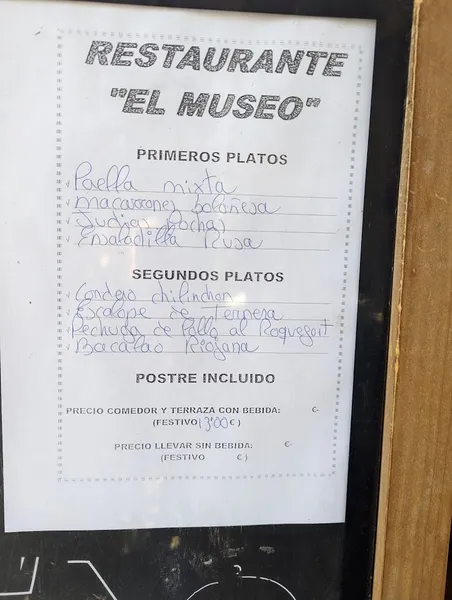 RESTAURANTE
"EL MUSEO"
PRIMEROS PLATOS
Paella mixta
macarrones boloñesa
Judias Pochas
Ensaladilla Rusa
SEGUNDOS PLATOS
Cordero chilindron
Escalope de Ternera
Pechuga de Pollo al Roquefort
Bacalao Riojana
POSTRE INCLUIDO
PRECIO COMEDOR Y TERRAZA CON BEBIDA: €-
(FESTIVO 13'00 €)
PRECIO LLEVAR SIN BEBIDA: €-
(FESTIVO €)